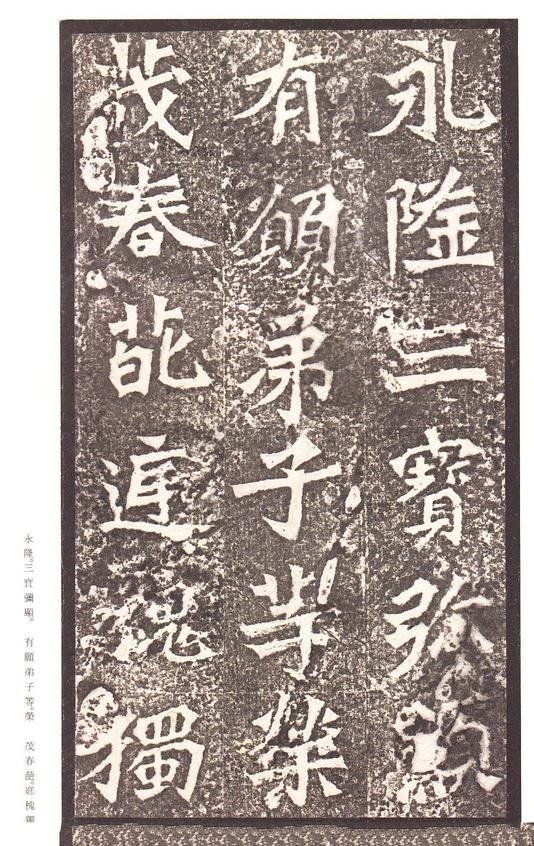 永隆三寶弥顯
有願弟子等榮
茂春葩庭槐獨
永隆。三寶彌顯。 有願弟子等。榮 茂春葩。庭槐獨